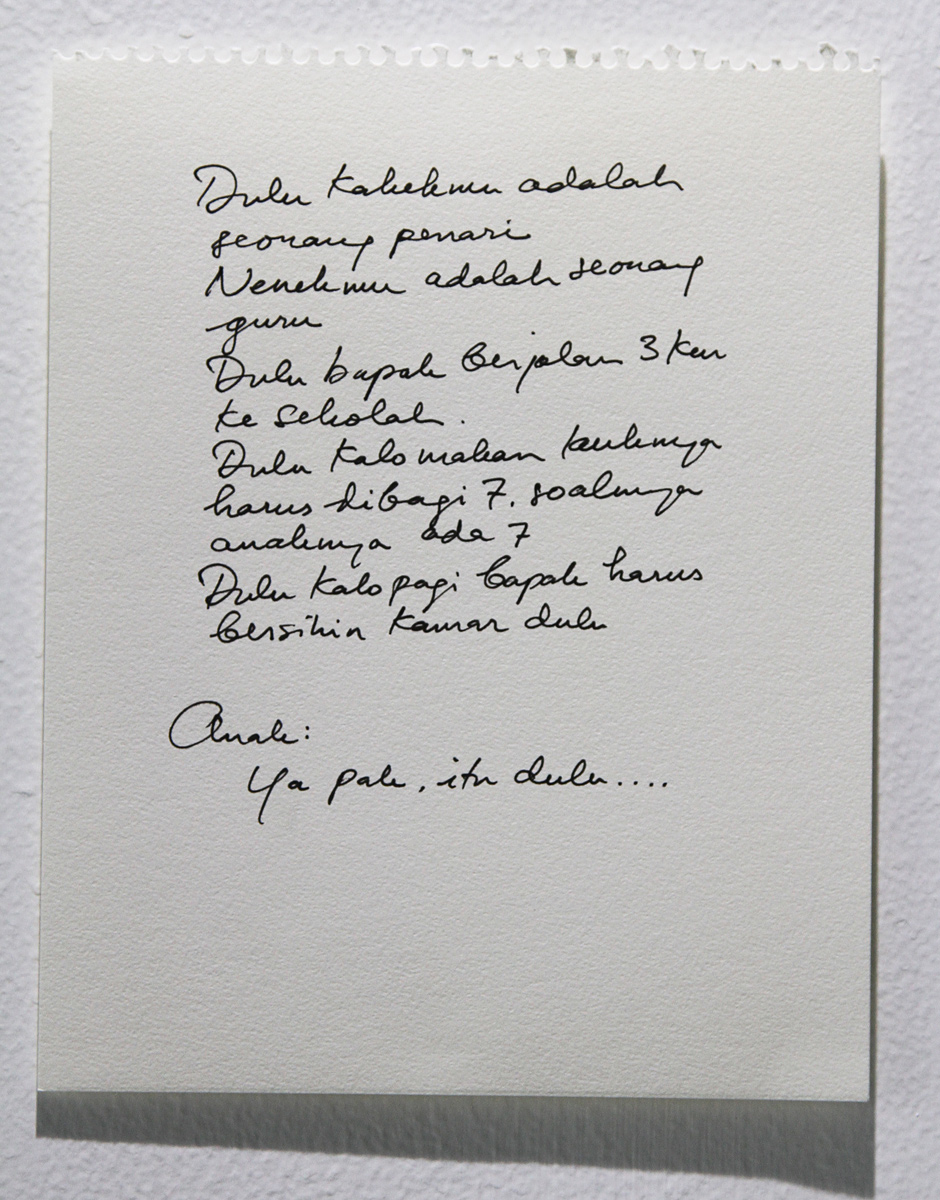 Dulu kakekmu adalah
seorang penari
Nenekmu adalah seorang
guru
Dulu bapak berjalan 3 km
ke sekolah.
Dulu kalo makan lauknya
harus dibagi 7. soalnya
anaknya ada 7
Dulu kalo pagi bapak harus
bersihin kamar dulu
Anak:
Ya pak, itu dulu....